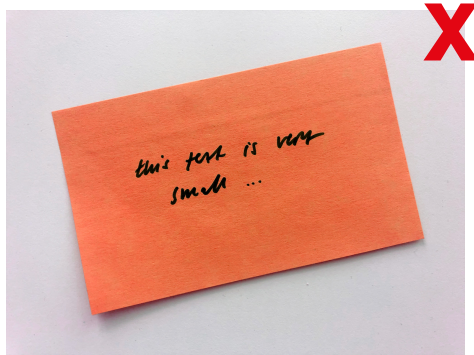 X
this text is very
small ...